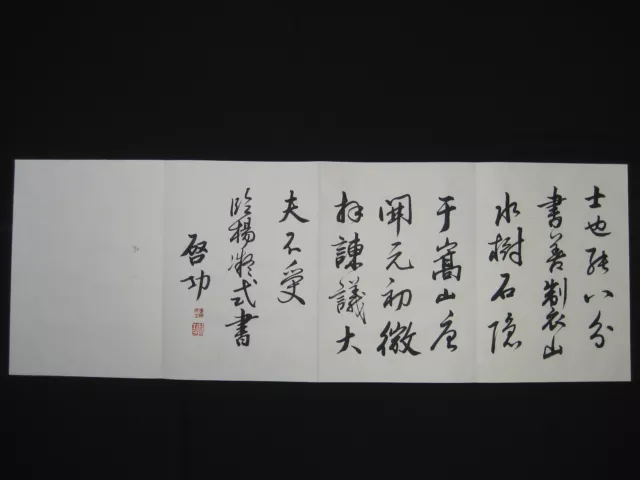 士也能八分
書善製山
水樹石隱
于嵩山唐
開元初徵
拜諫議大
夫不受
臨楊凝式書
啟功